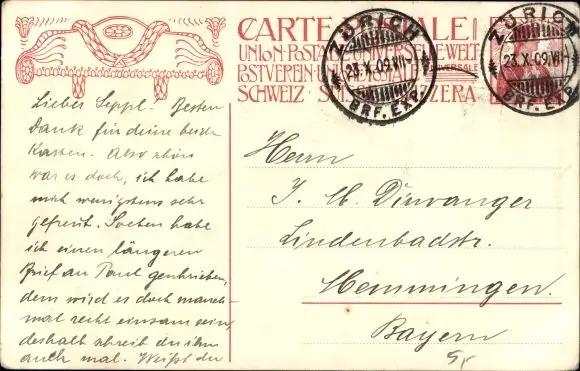 CARTE POSTALE
UNION POSTALE UNIVERSELLE WELT
POSTVEREIN UNIONE POSTALE UNIVERSALE
SCHWEIZ SUISSE SVIZZERA
ZÜRICH
23.X.09.VII-
BRF. EXP.
ZÜRICH
23.X.09.VII-
BRF. EXP.
Lieber Seppl. Besten
Dank für deine beide
Karten. Also schön
war es doch, ich habe
mich wenigstens sehr
gefreut. Soeben habe
ich einen längeren
Brief an Paul geschrieben,
dem wird es doch manch-
mal recht einsam sein,
deshalb schreib du ihm
auch mal. Weißt du
Herrn
J. M. Dirwanger
Lindenbadstr.
Memmingen.
Bayern